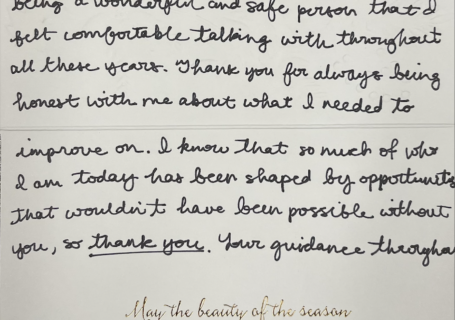 being a wonderful and safe person that I
felt comfortable talking with throughout
all these years. Thank you for always being
honest with me about what I needed to
improve on. I know that so much of who
I am today has been shaped by opportunit
that wouldn't have been possible without
you, so thank you. Your guidance througho
May the beauty of the season